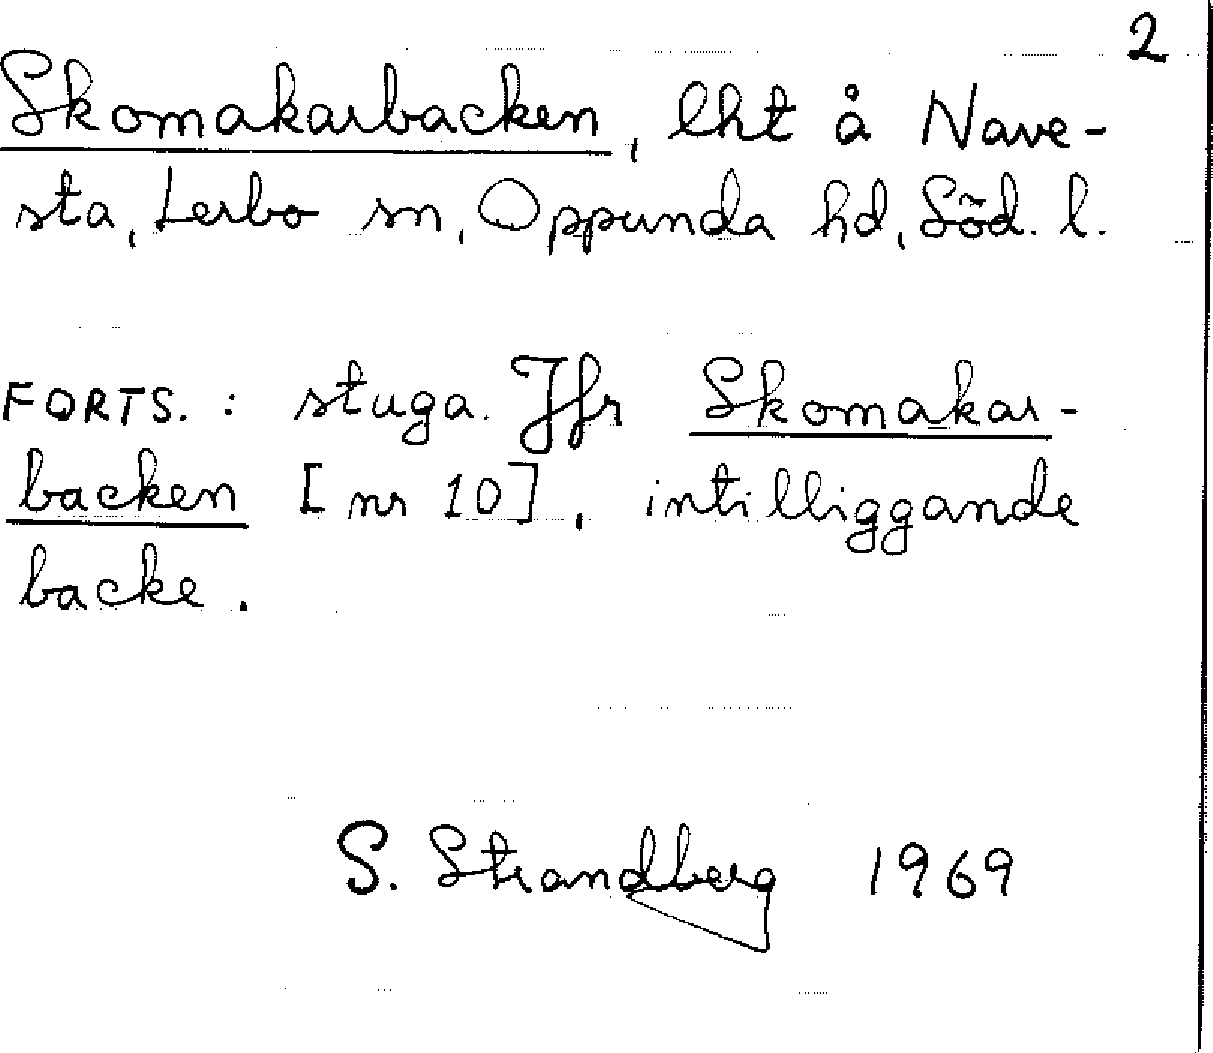 2
Skomakarbacken, lht å Nave-
sta, Lerbo sn, Oppunda hd, Söd. l.
FORTS. : stuga. Jfr Skomakar-
backen [nr 10], intilliggande
backe.
S. Strandberg 1969